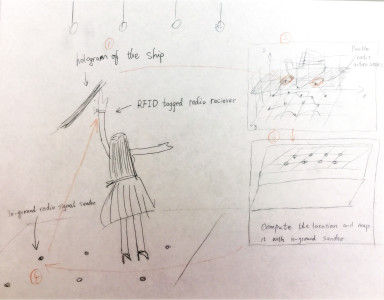 hologram of the ship
RFID tagged radio reciever
In-ground radio signal sender
Compute the location and map
it with in-ground sender